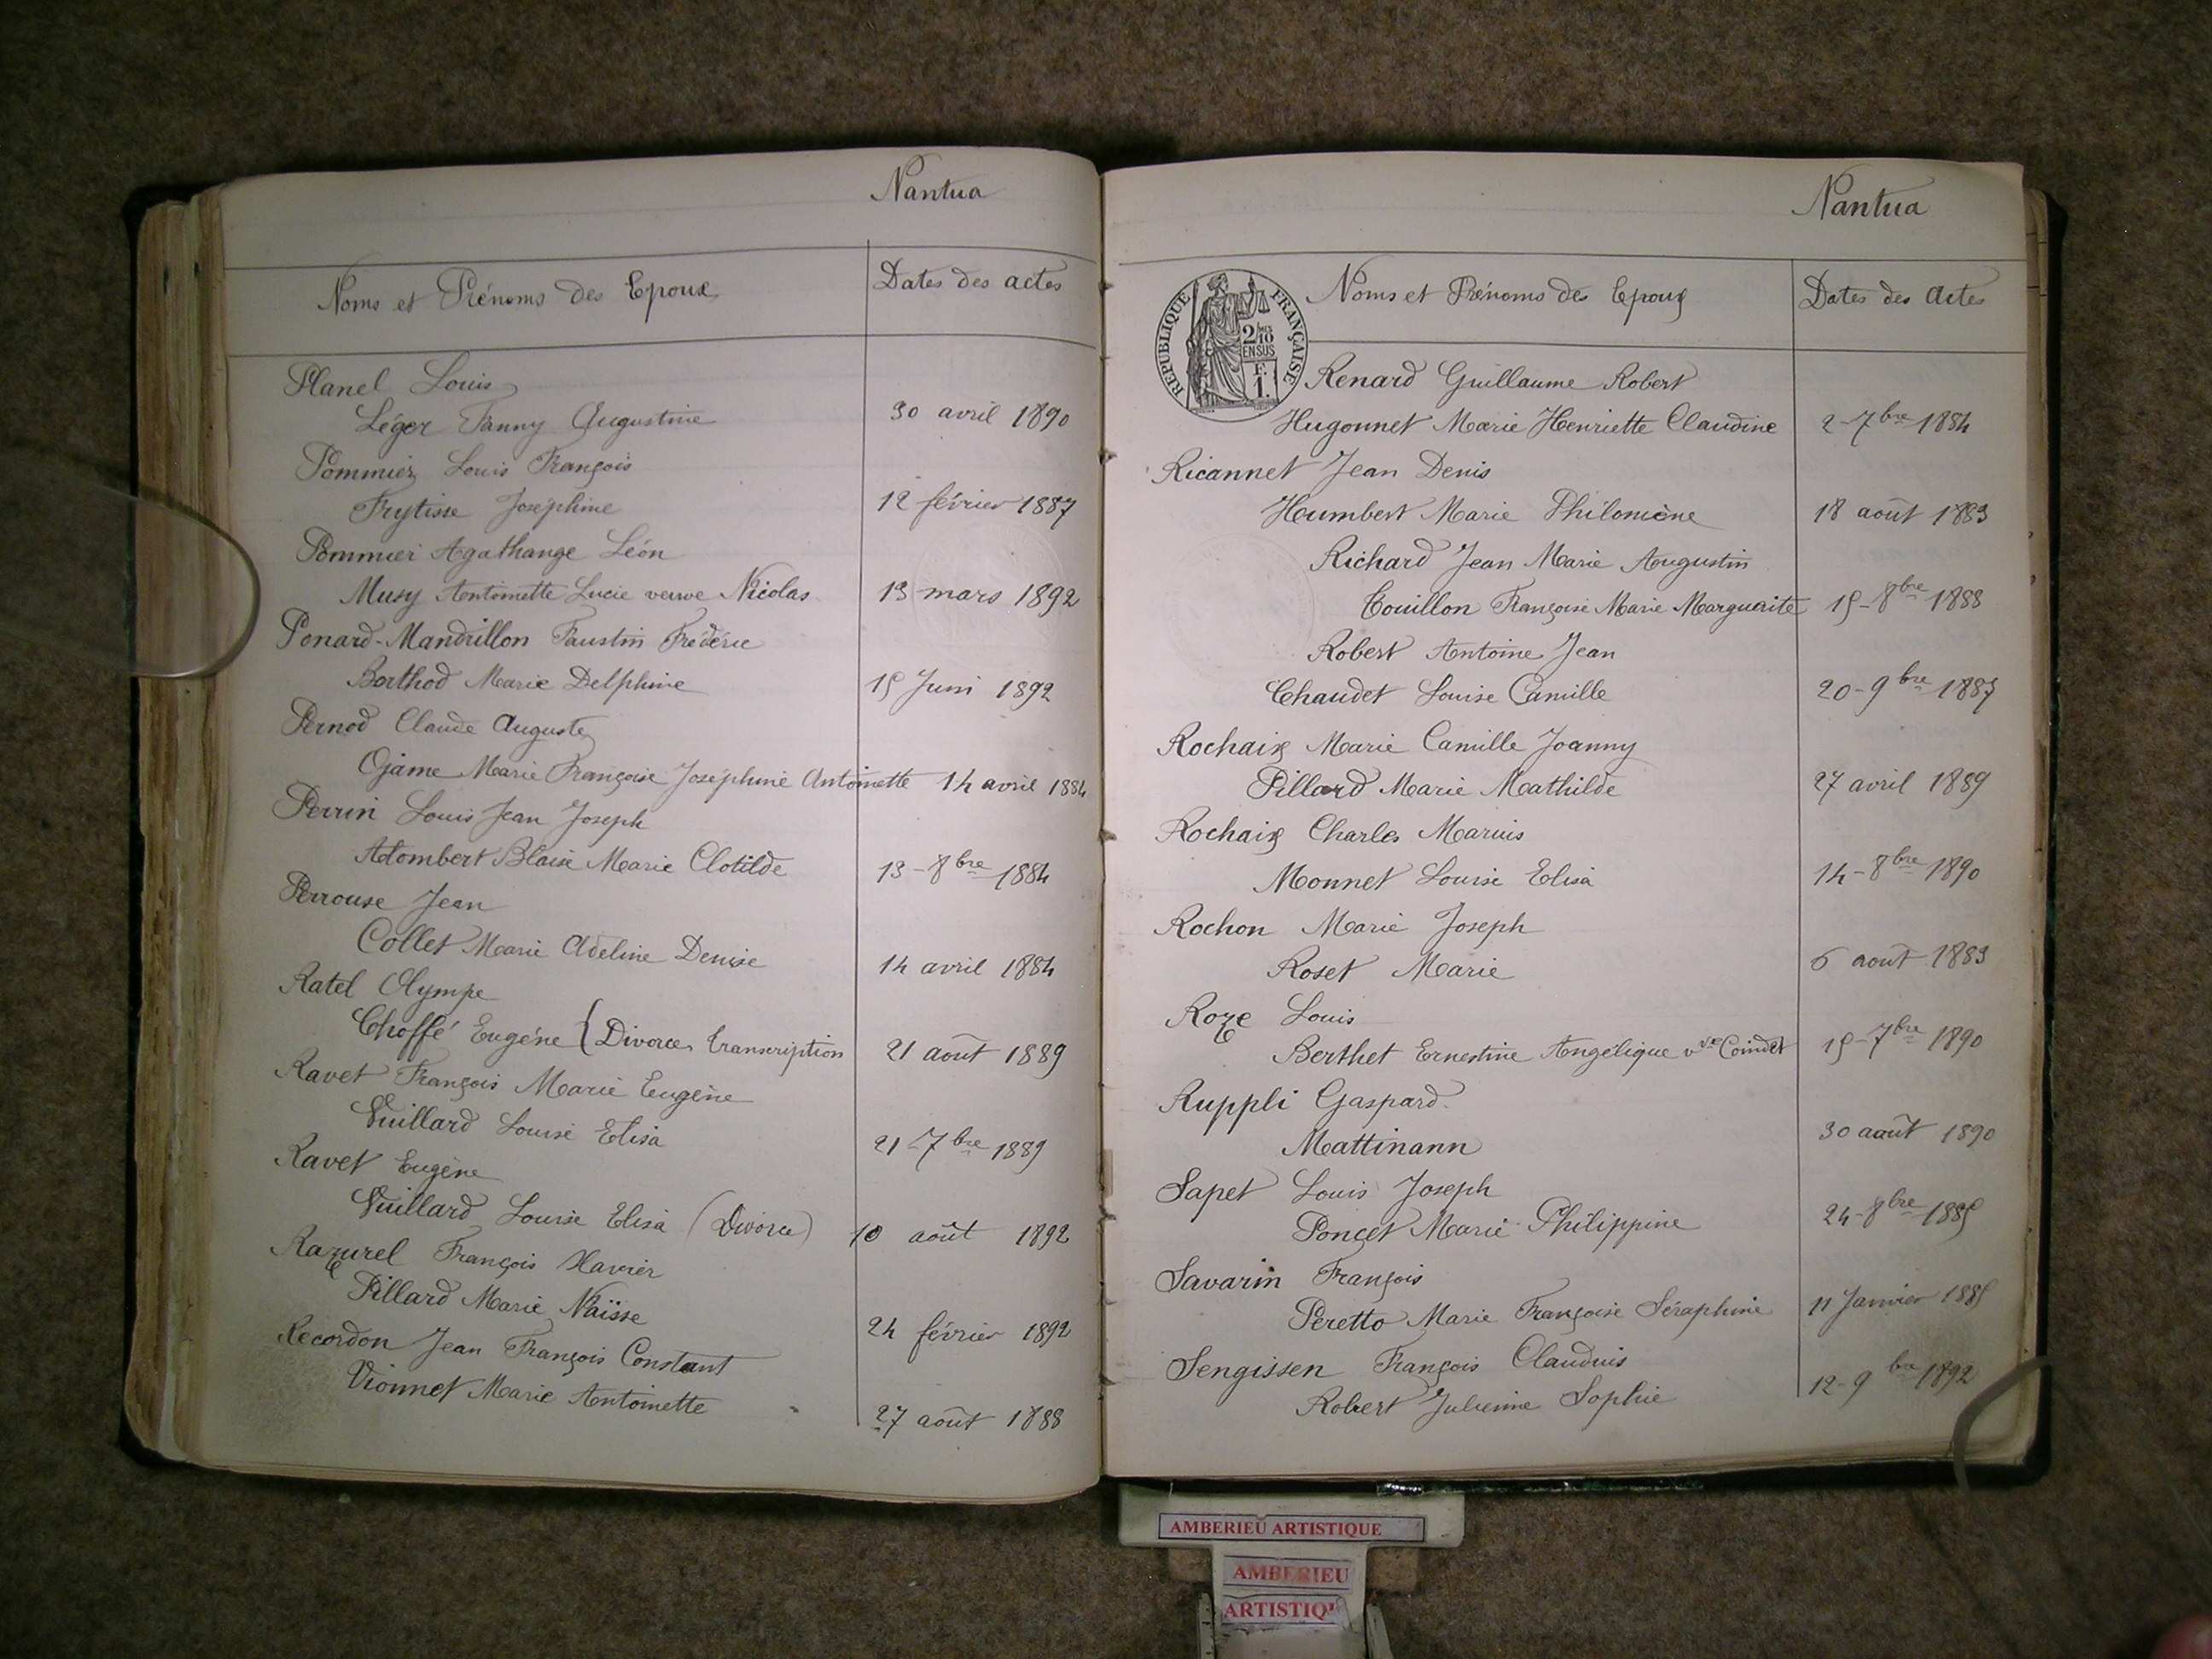 Nantua
Noms et Prénoms des Epoux
Dates des actes
Planel Louis
Léger Fanny Augustine 30 avril 1890
Pommier Louis François
Frytisse Joséphine 12 février 1887
Pommier Agathange Léon
Musy Antoinette Lucie veuve Nicolas 13 mars 1892
Ponard-Mandrillon Faustin Frédéric
Berthod Marie Delphine 15 Juin 1892
Pernod Claude Auguste
Ojame Marie Françoise Joséphine Antoinette 14 avril 1884
Perrin Louis Jean Joseph
Alombert Blaise Marie Clotilde 13-8bre 1884
Perrouse Jean
Collet Marie Adeline Denise 14 avril 1884
Ratel Olympe
Choffé Eugène { Divorce transcription 21 août 1889
Ravet François Marie Eugène
Vuillard Louise Elisa 21-7bre 1889
Ravet Eugène
Vuillard Louise Elisa (Divorce) 10 août 1892
Razurel François Xavier
Pillard Marie Naïsse 24 février 1892
Recordon Jean François Constant
Vionnet Marie Antoinette 27 août 1888
Nantua
Noms et Prénoms des Epoux
Dates des Actes
REPUBLIQUE FRANÇAISE
2/10MES
EN SUS
F.
1.
Renard Guillaume Robert
Hugonnet Marie Henriette Claudine 2-7bre 1884
Ricannet Jean Denis
Humbert Marie Philomène 18 août 1883
Richard Jean Marie Augustin
Couillon Françoise Marie Marguerite 15-8bre 1888
Robert Antoine Jean
Chaudet Louise Camille 20-9bre 1887
Rochaix Marie Camille Joanny
Pillard Marie Mathilde 27 avril 1889
Rochaix Charles Marius
Monnet Louise Elisa 14-8bre 1890
Rochon Marie Joseph
Roset Marie 6 août 1883
Roze Louis
Berthet Ernestine Angélique vve Coindet 15-7bre 1890
Ruppli Gaspard
Mattinann 30 août 1890
Sapet Louis Joseph
Poncet Marie Philippine 24-8bre 1885
Savarin François
Peretto Marie Françoise Séraphine 11 Janvier 1885
Sengissen François Claudius
Robert Julienne Sophie 12-9bre 1892
AMBERIEU ARTISTIQUE
AMBERIEU
ARTISTIQU